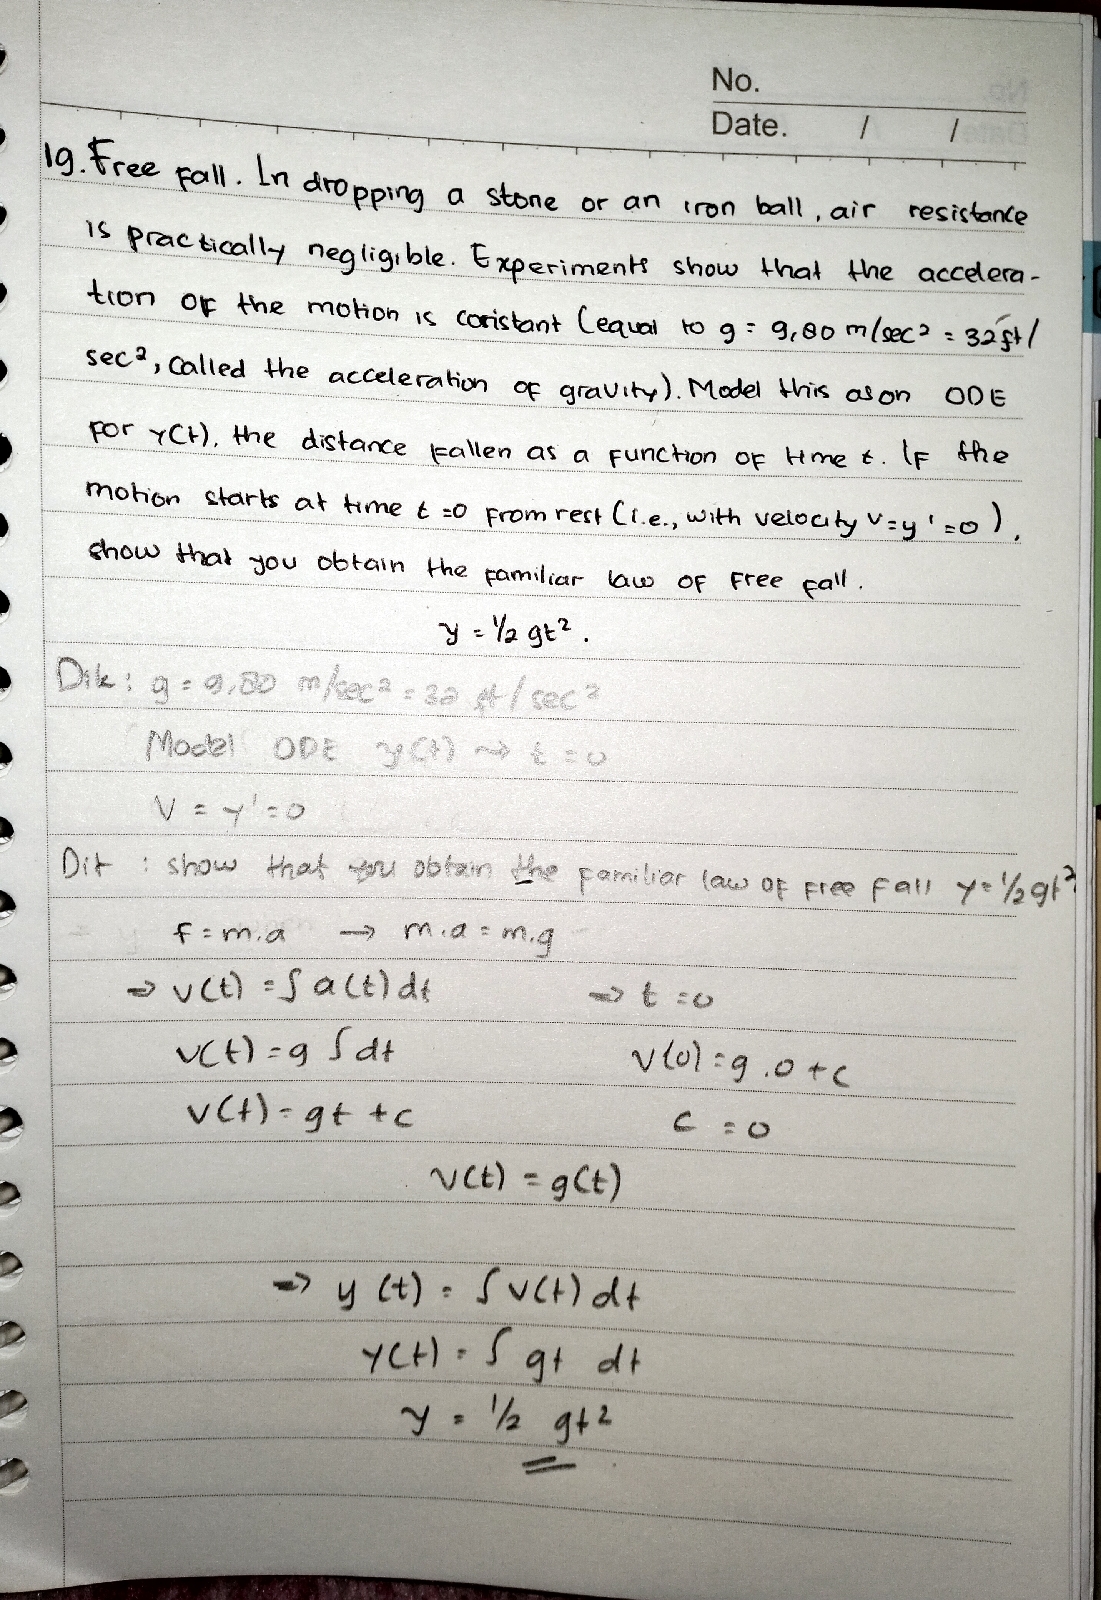 No.
Date. / /
19. Free fall. In dropping a stone or an iron ball, air resistance
is practically negligible. Experiments show that the accelera-
tion of the motion is constant (equal to g = 9,80 m/sec² = 32 ft/
sec², called the acceleration of gravity). Model this as an ODE
for y(t), the distance fallen as a function of time t. If the
motion starts at time t = 0 from rest (i.e., with velocity v = y' = 0),
show that you obtain the familiar law of free fall.
y = 1/2 gt².
Dik : g = 9,80 m/sec² = 32 ft/sec²
Model ODE y(t) → t = 0
V = y' = 0
Dit : show that you obtain the familiar law of free fall y = 1/2 gt²
f = m.a → m.a = m.g
⇒ v(t) = ∫ a(t) dt ⇒ t = 0
v(t) = g ∫ dt v(0) = g . 0 + c
v(t) = gt + c c = 0
v(t) = g(t)
⇒ y(t) = ∫ v(t) dt
y(t) = ∫ gt dt
y = 1/2 gt²